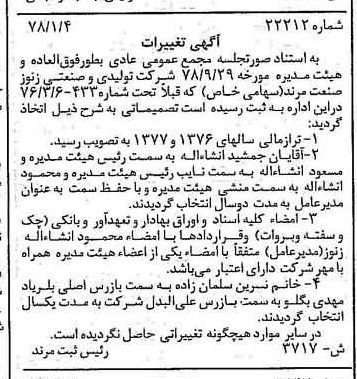 شماره ۲۲۲۱۲ ۷۸/۱/۴
آگهی تغییرات
به استناد صورتجلسه مجمع عمومی عادی بطورفوق‌العاده و
هیئت مدیره مورخه ۷۸/۹/۲۹ شرکت تولیدی و صنعتی زنوز
صنعت مرند(سهامی خاص) که قبلاً تحت شماره ۴۳۳-۷۶/۳/۶
دراین اداره به ثبت رسیده است تصمیماتی به شرح ذیل اتخاذ
گردید:
۱-ترازمالی سالهای ۱۳۷۶ و ۱۳۷۷ به تصویب رسید.
۲-آقایان جمشید انشاءاله به سمت رئیس هیئت مدیره و
مسعود انشاءاله به سمت نایب رئیس هیئت مدیره و محمود
انشاءاله به سمت منشی هیئت مدیره و با حفظ سمت به عنوان
مدیرعامل به مدت دوسال انتخاب گردیدند.
۳- امضاء کلیه اسناد و اوراق بهادار و تعهدآور و بانکی (چک
و سفته وبروات) وقراردادها با امضاء محمود انشاءاله
زنوز(مدیرعامل) متفقاً با امضاء یکی از اعضاء هیئت مدیره همراه
با مهر شرکت دارای اعتبار می‌باشد.
۴- خانم نسرین سلمان زاده به سمت بازرس اصلی بلریاد
مهدی بگلو به سمت بازرس علی‌البدل شرکت به مدت یکسال
انتخاب گردیدند.
درسایر موارد هیچگونه تغییراتی حاصل نگردیده است.
ش- ۳۷۱۷ رئیس ثبت مرند